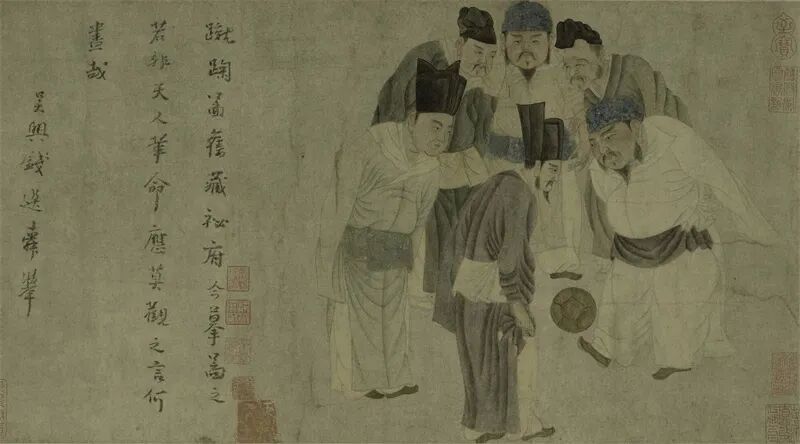 蹴踘啚舊藏祕府今摹啚之
若非天人革命應莫觀之言何
畫哉
吴興錢選舜舉